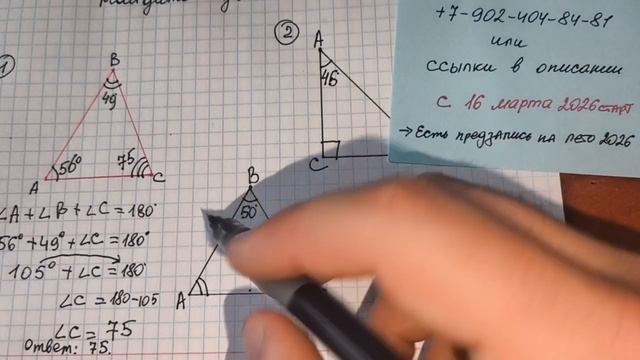 1
B
49
56°
75
A
C
∠A+∠B+∠C=180°
56°+49°+∠C=180°
105°+∠C=180°
∠C=180-105
∠C=75
Ответ: 75.
2
A
46
C
B
50°
A
+7-902-404-84-81
или
ссылки в описании
с 16 марта 2026 старт
→Есть предзапись на лето 2026